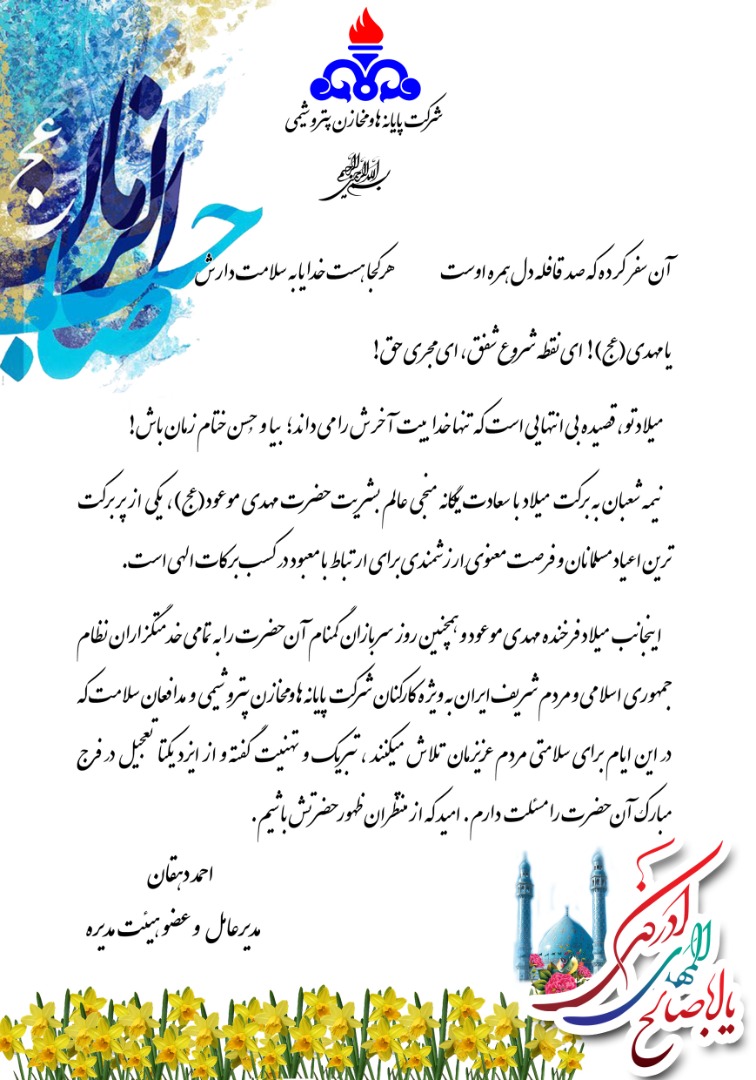 صاحب الزمان
عج
شرکت پایانه ها و مخازن پتروشیمی
بسم الله الرحمن الرحیم
آن سفر کرده که صد قافله دل همره اوست هر کجا هست خدایا به سلامت دارش
یا مهدی (عج)! ای نقطه شروع شفق، ای مجری حق!
میلاد تو، قصیده بی انتهایی است که تنها خدا بیت آخرش را می داند؛ بیا و حُسن ختام زمان باش!
نیمه شعبان به برکت میلاد با سعادت یگانه منجی عالم بشریت حضرت مهدی موعود (عج)، یکی از پر برکت
ترین اعیاد مسلمانان و فرصت معنوی ارزشمندی برای ارتباط با معبود در کسب برکات الهی است.
اینجانب میلاد فرخنده مهدی موعود و همچنین روز سربازان گمنام آن حضرت را به تمامی خدمتگزاران نظام
جمهوری اسلامی و مردم شریف ایران به ویژه کارکنان شرکت پایانه ها و مخازن پتروشیمی و مدافعان سلامت که
در این ایام برای سلامتی مردم عزیزمان تلاش میکنند ، تبریک و تهنیت گفته و از ایزد یکتا تعجیل در فرج
مبارک آن حضرت را مسئلت دارم . امید که از منتظران ظهور حضرتش باشیم .
احمد دهقان
مدیر عامل و عضو هیئت مدیره
یا اباصالح المهدی ادرکنی